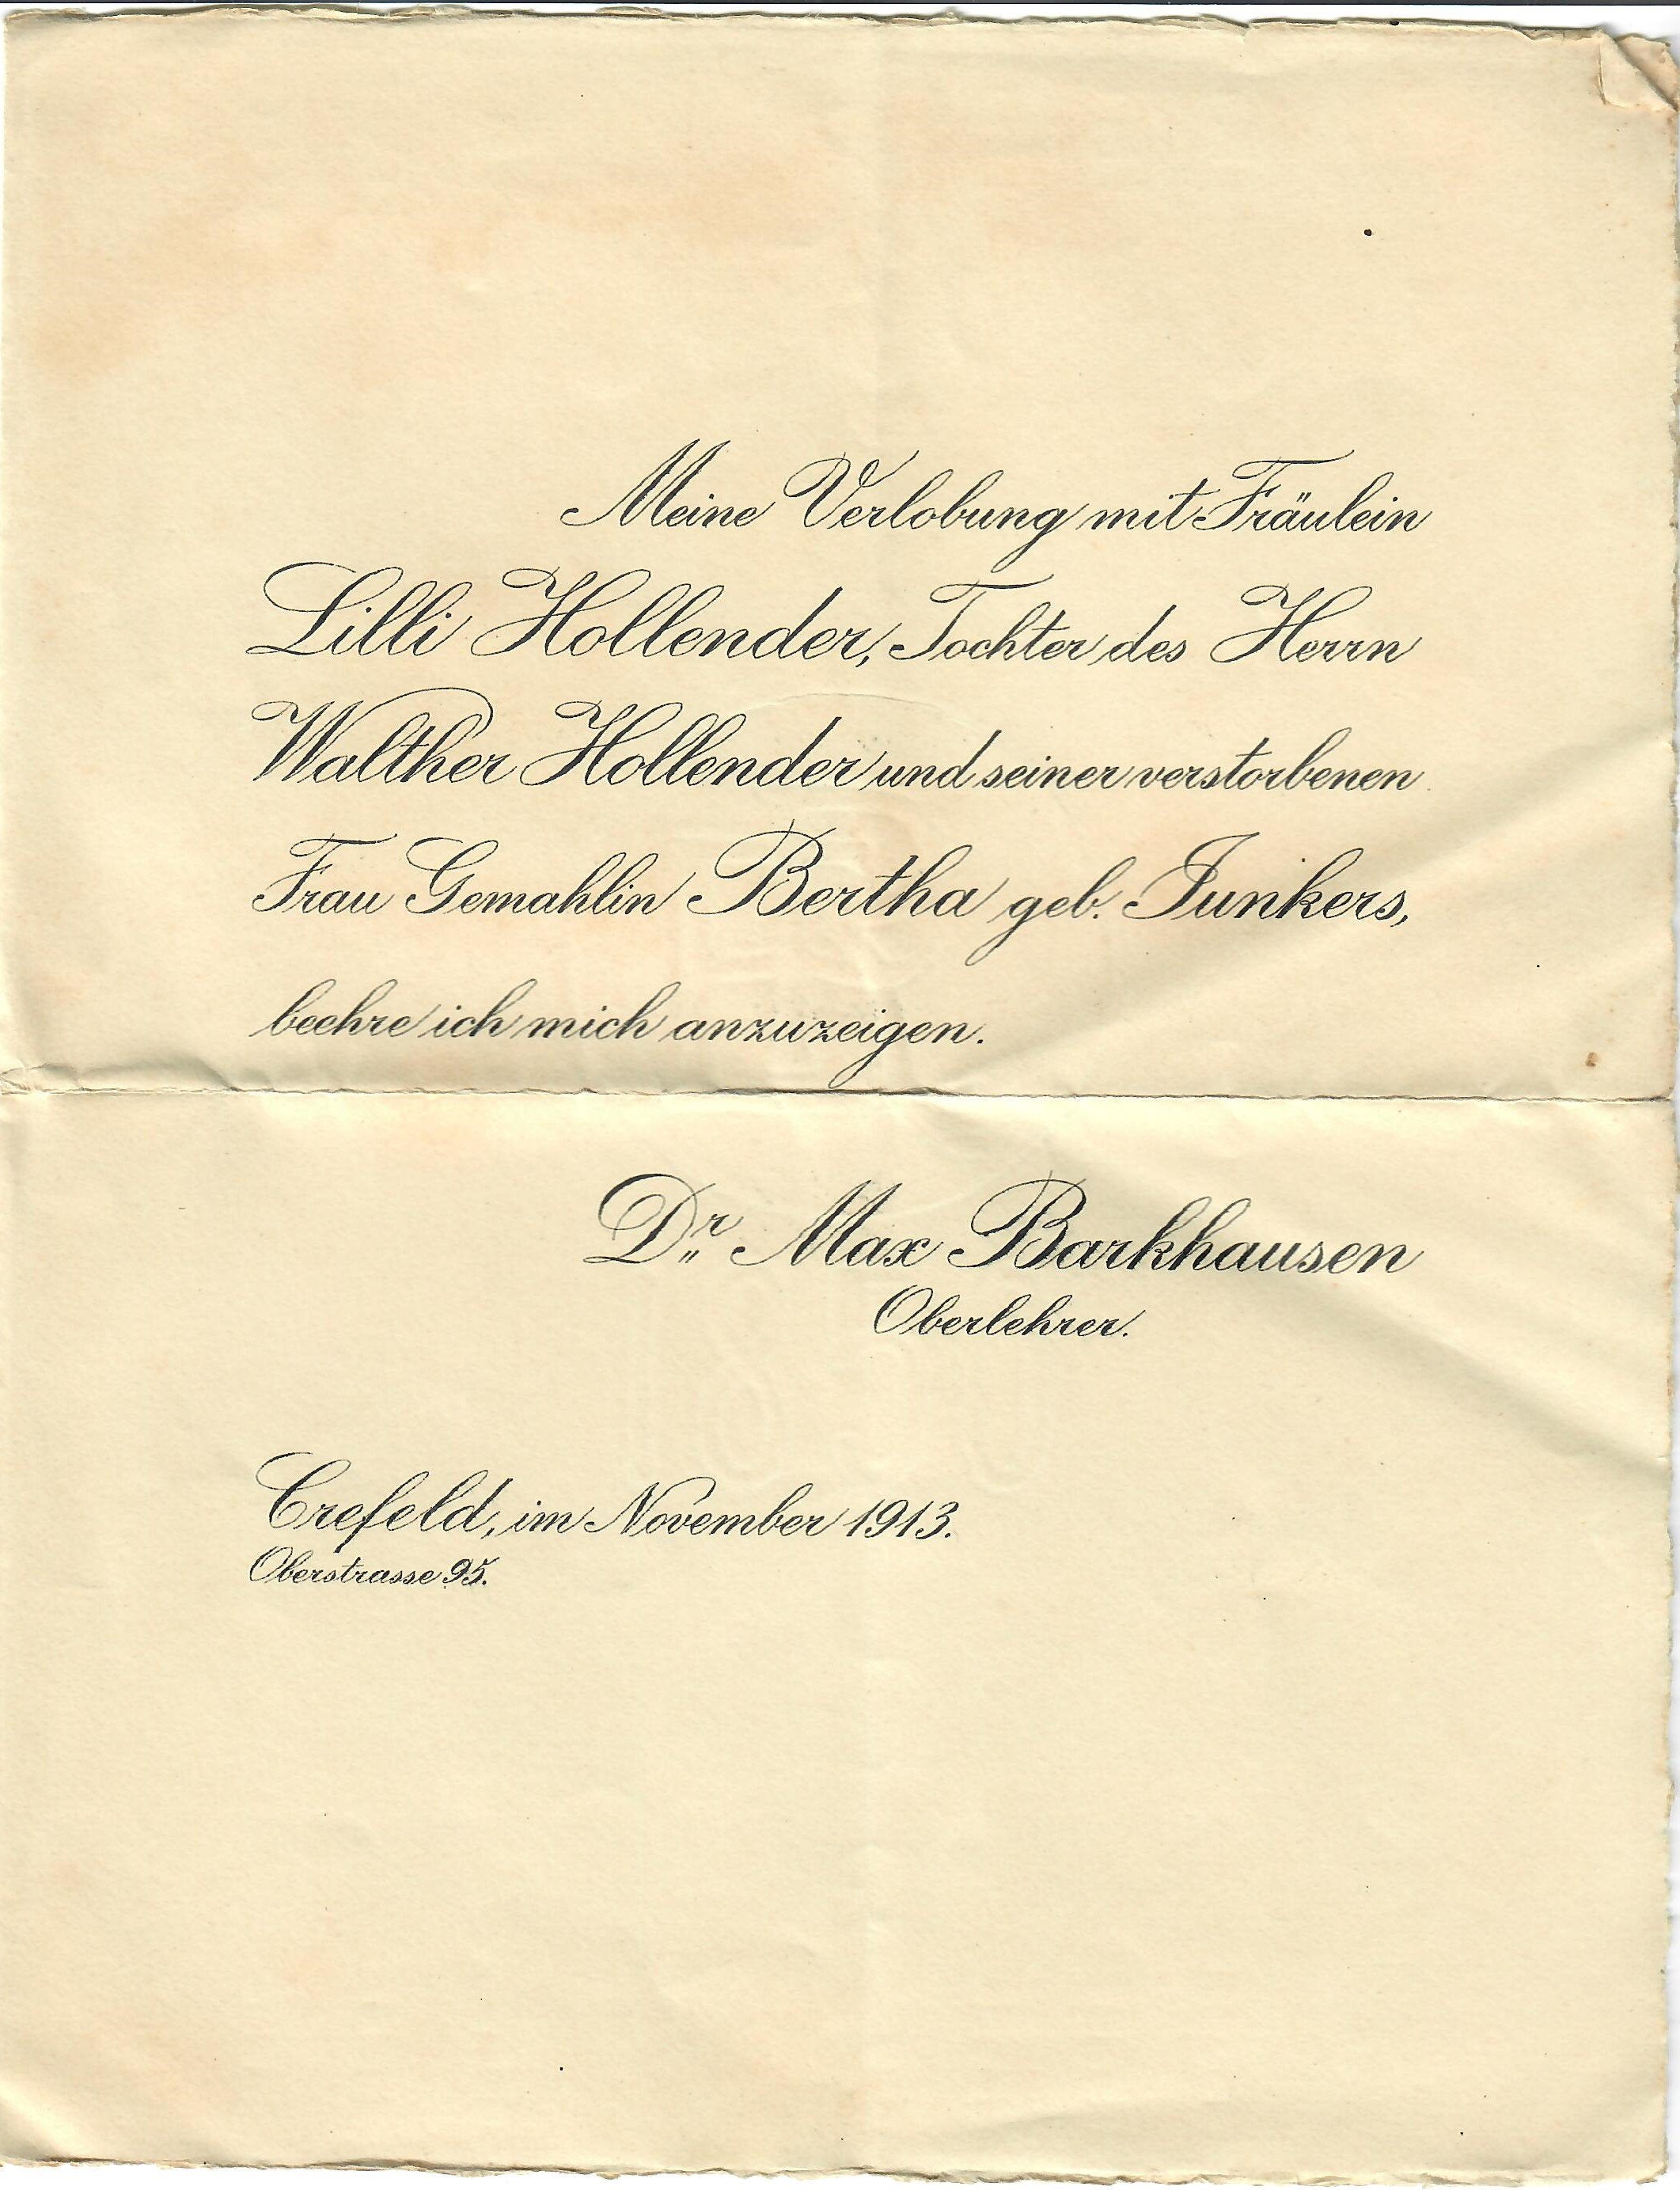 Meine Verlobung mit Fräulein
Lilli Hollender, Tochter des Herrn
Walther Hollender und seiner verstorbenen
Frau Gemahlin Bertha geb. Junkers,
beehre ich mich anzuzeigen.
Dr. Max Barkhausen
Oberlehrer.
Crefeld, im November 1913.
Oberstrasse 95.